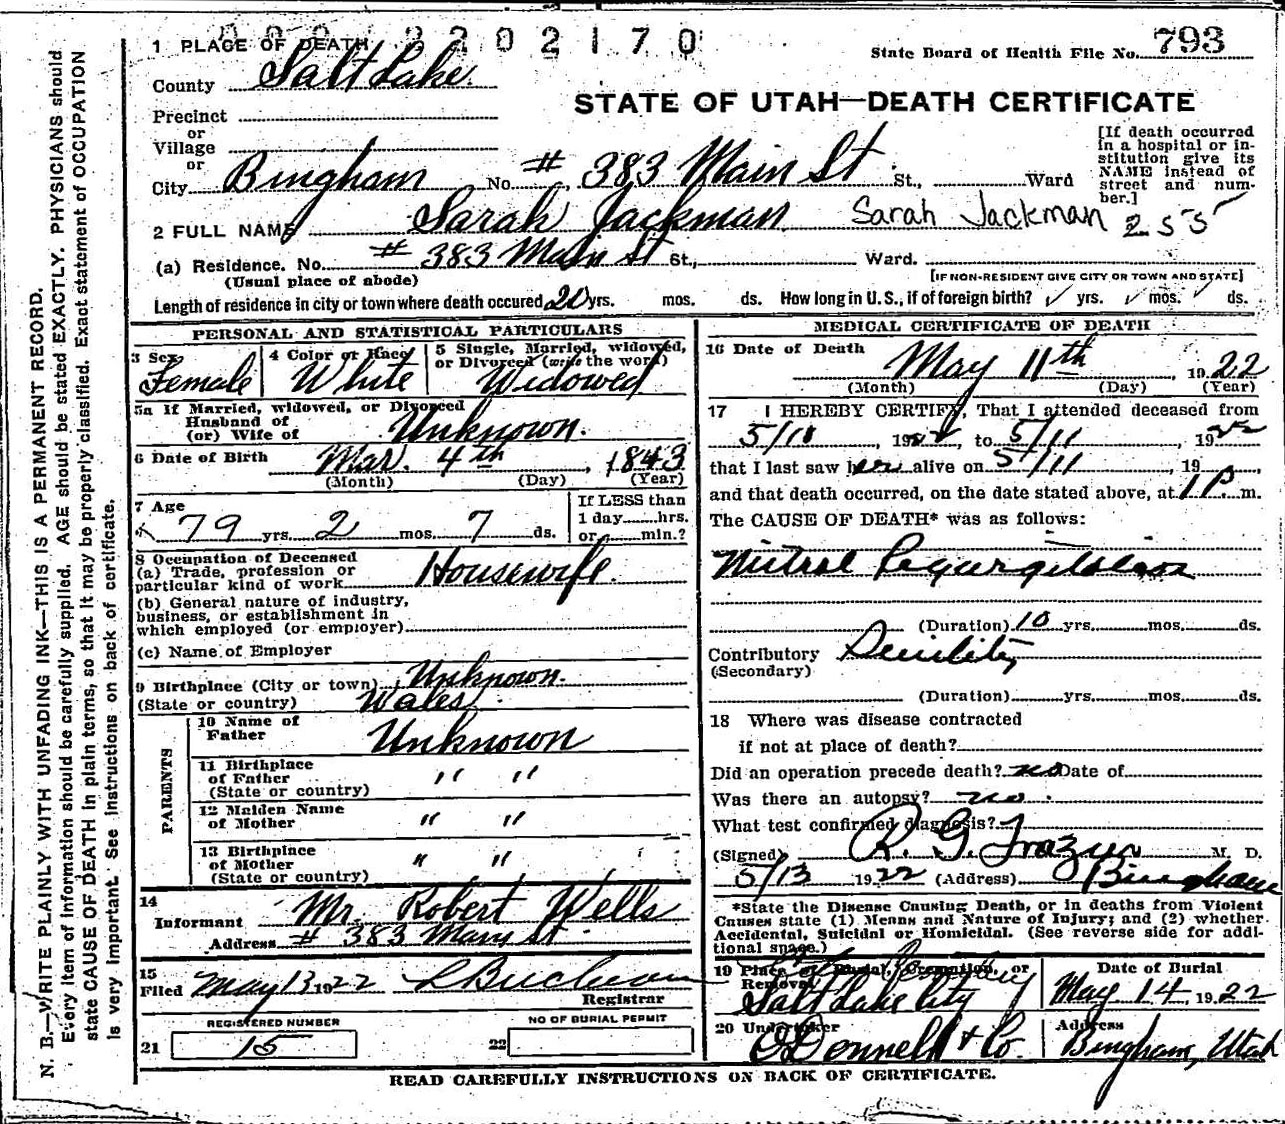 2202170
1 PLACE OF DEATH
State Board of Health File No. 793
County Salt Lake.
STATE OF UTAH—DEATH CERTIFICATE
Precinct
or
Village
or
City Bingham No. # 383 Main St St., Ward
[If death occurred in a hospital or institution give its NAME instead of street and number.]
2 FULL NAME Sarah Jackman Sarah Jackman 255
(a) Residence. No. # 383 Main St St., Ward.
(Usual place of abode) [IF NON-RESIDENT GIVE CITY OR TOWN AND STATE]
Length of residence in city or town where death occured 20 yrs. mos. ds. How long in U. S., if of foreign birth? yrs. mos. ds.
PERSONAL AND STATISTICAL PARTICULARS
3 Sex 4 Color or Race 5 Single, Married, widowed,
or Divorced (write the word)
Female White Widowed
5a If Married, widowed, or Divorced
Husband of
(or) Wife of Unknown.
6 Date of Birth Mar. 4th, 1843
(Month) (Day) (Year)
7 Age If LESS than
79 yrs. 2 mos. 7 ds. 1 day hrs.
or min.?
8 Occupation of Deceased
(a) Trade, profession or
particular kind of work Housewife.
(b) General nature of industry,
business, or establishment in
which employed (or employer)
(c) Name of Employer
9 Birthplace (City or town) Unknown.
(State or country) Wales.
PARENTS
10 Name of
Father Unknown
11 Birthplace
of Father " "
(State or country)
12 Maiden Name
of Mother " "
13 Birthplace
of Mother " "
(State or country)
14
Informant Mr. Robert Wells
Address # 383 Main St.
15
Filed May 13 1922
Registrar
REGISTERED NUMBER NO OF BURIAL PERMIT
21 15 22
MEDICAL CERTIFICATE OF DEATH
16 Date of Death May 11th, 1922
(Month) (Day) (Year)
17 I HEREBY CERTIFY, That I attended deceased from
5/10, 1922, to 5/11, 1922
that I last saw her alive on 5/11, 19
and that death occurred, on the date stated above, at 1 P. m.
The CAUSE OF DEATH* was as follows:
Mitral Regurgitation
(Duration) 10 yrs. mos. ds.
Contributory Senility
(Secondary)
(Duration) yrs. mos. ds.
18 Where was disease contracted
if not at place of death?
Did an operation precede death? no Date of
Was there an autopsy? no.
What test confirmed diagnosis?
(Signed) R. G. Frazier M. D.
5/13 1922 (Address) Bingham
*State the Disease Causing Death, or in deaths from Violent
Causes state (1) Means and Nature of Injury; and (2) whether
Accidental, Suicidal or Homicidal. (See reverse side for addi-
tional space.)
19 Place of Burial, Cremation, or
Removal Date of Burial
Salt Lake City May 14, 1922
20 Undertaker Address
O'Donnell & Co. Bingham, Utah
READ CAREFULLY INSTRUCTIONS ON BACK OF CERTIFICATE.
N. B.—WRITE PLAINLY WITH UNFADING INK—THIS IS A PERMANENT RECORD.
Every item of information should be carefully supplied. AGE should be stated EXACTLY. PHYSICIANS should
state CAUSE OF DEATH in plain terms, so that it may be properly classified. Exact statement of OCCUPATION
is very important. See instructions on back of certificate.